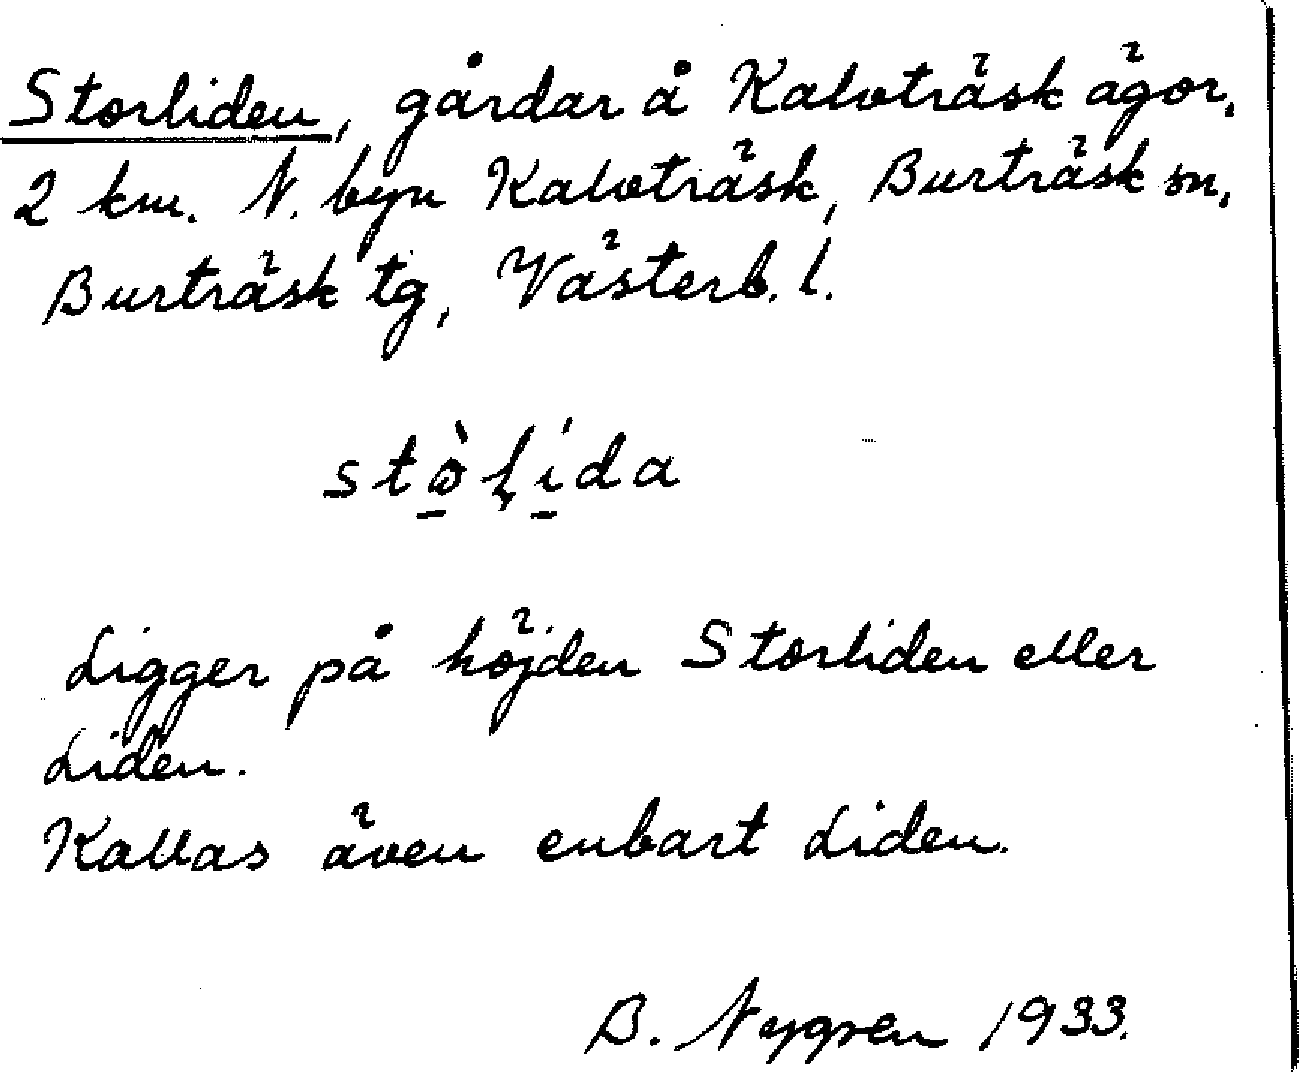 Storliden, gårdar å Kalvträsk ägor,
2 km. N. byn Kalvträsk, Burträsk sn,
Burträsk tg, Västerb. l.
Ligger på höjden Storliden eller
Liden.
Kallas även enbart Liden.
B. Nygren 1933.